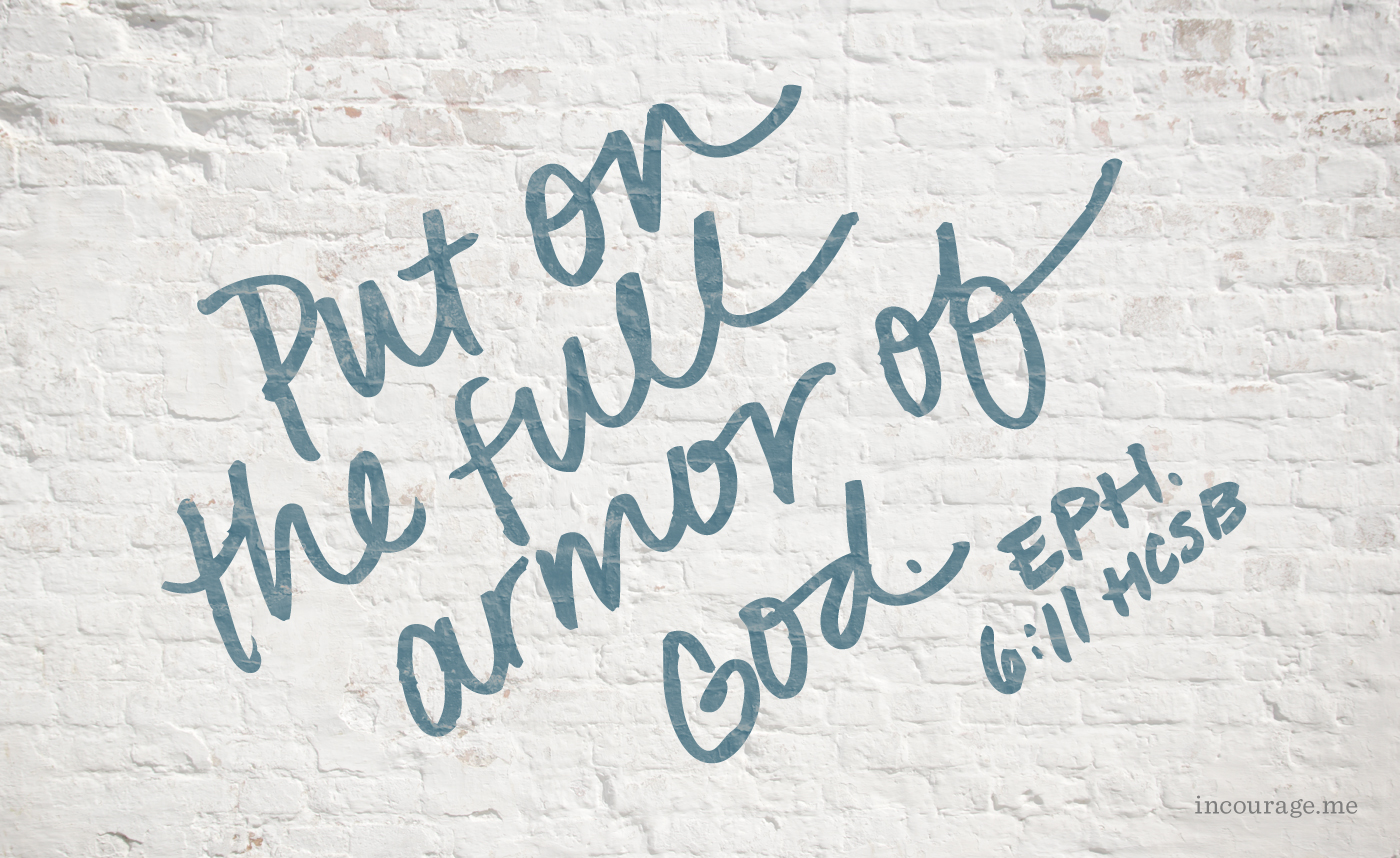 Put on
the full
armor of
God.
EPH.
6:11 HCSB
incourage.me